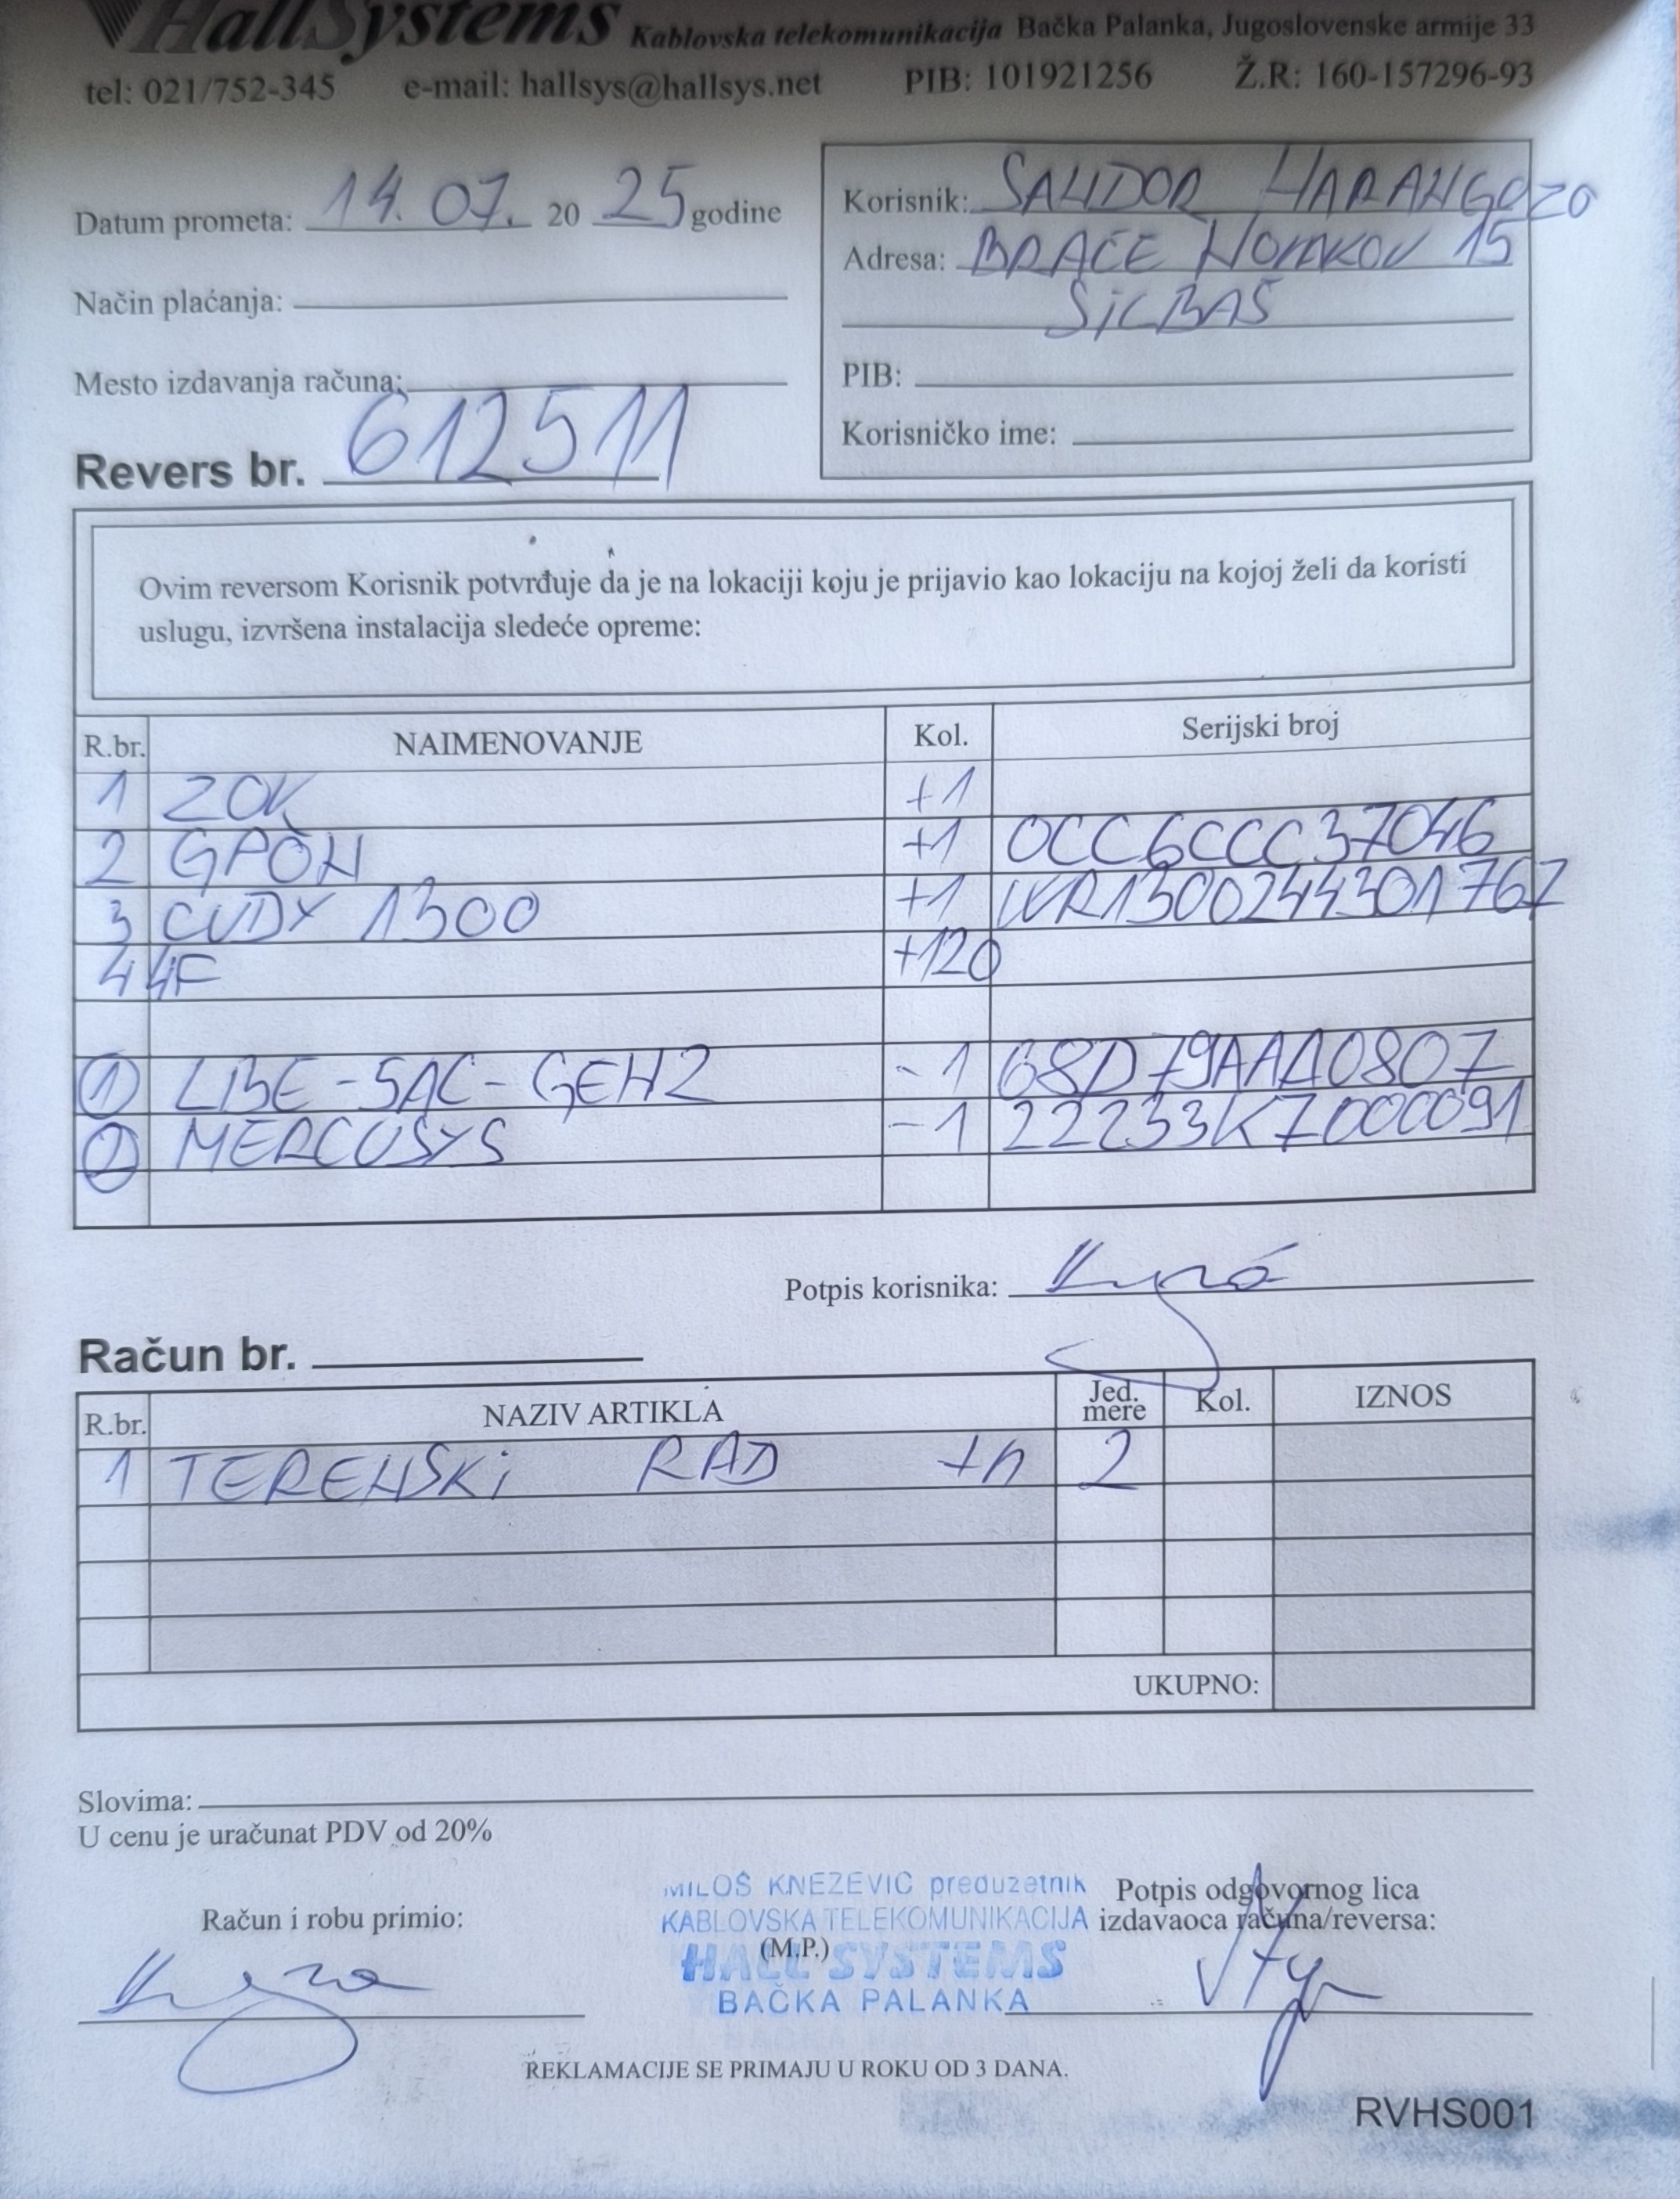 HallSystems Kablovska telekomunikacija Bačka Palanka, Jugoslovenske armije 33
tel: 021/752-345 e-mail: hallsys@hallsys.net PIB: 101921256 Ž.R: 160-157296-93
Datum prometa: 14.07. 20 25 godine
Način plaćanja:
Mesto izdavanja računa:
Revers br. 612511
Korisnik: SANDOR HARANGOZO
Adresa: BRAĆE NOVAKOV 15
SILBAŠ
PIB:
Korisničko ime:
Ovim reversom Korisnik potvrđuje da je na lokaciji koju je prijavio kao lokaciju na kojoj želi da koristi
uslugu, izvršena instalacija sledeće opreme:
R.br. NAIMENOVANJE Kol. Serijski broj
1 ZOK +1
2 GPON +1 0CC6CCC37046
3 CUDY 1300 +1 WR1300244301767
4 4F +120
1 LBE-5AC-GEN2 -1 68D79AAA0807
2 MERCUSYS -1 22233K7000091
Potpis korisnika:
Račun br.
R.br. NAZIV ARTIKLA Jed. mere Kol. IZNOS
1 TERENSKI RAD +h 2
UKUPNO:
Slovima:
U cenu je uračunat PDV od 20%
Račun i robu primio:
MILOŠ KNEZEVIĆ preduzetnik
KABLOVSKA TELEKOMUNIKACIJA
(M.P.)
HALL SYSTEMS
BAČKA PALANKA
Potpis odgovornog lica
izdavaoca računa/reversa:
REKLAMACIJE SE PRIMAJU U ROKU OD 3 DANA.
RVHS001